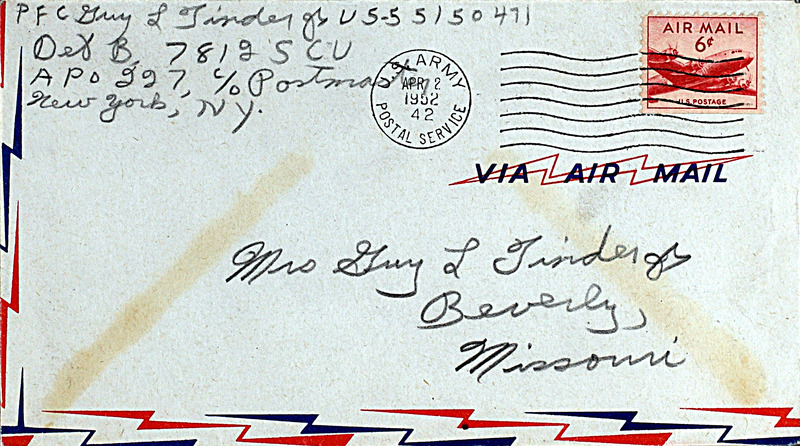 PFC Guy L Tinder Jr US 55150471
Det B, 7812 SCU
APO 227, c/o Postmaster
New York, NY.
U.S. ARMY
APR 2
1952
42
POSTAL SERVICE
AIR MAIL
6¢
U.S. POSTAGE
VIA AIR MAIL
Mrs Guy L Tinder Jr
Beverly,
Missouri